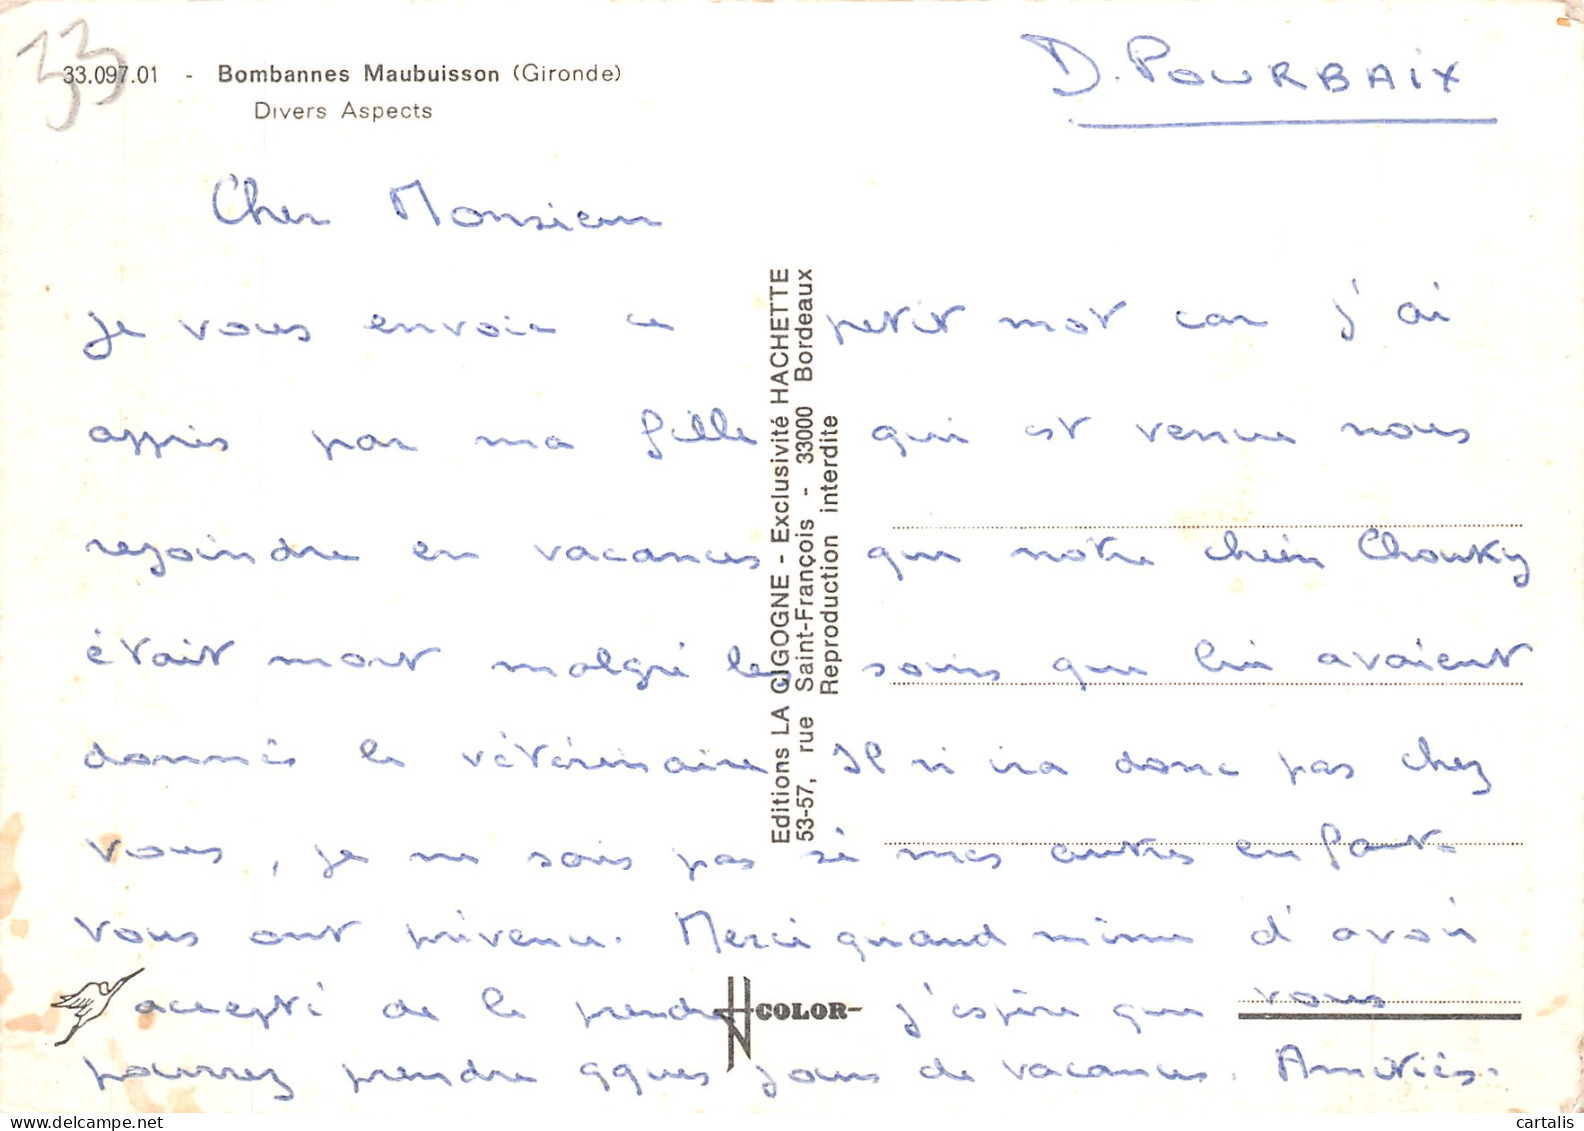 33
33.097.01 - Bombannes Maubuisson (Gironde)
Divers Aspects
D. POURBAIX
Cher Monsieur
je vous envoie ce petit mot car j'ai
appris par ma fille qui est venue nous
rejoindre en vacances que notre chien Chouky
était mort malgré les soins que lui avaient
donnés le vétérinaire. Il n'ira donc pas chez
vous, je ne sais pas si mes autres enfants
vous ont prévenu. Merci quand même d'avoir
accepté de le prendre j'espère que vous
pourrez prendre qques jours de vacances. Amitiés.
Editions LA GIGOGNE - Exclusivité HACHETTE
53-57, rue Saint-François - 33000 Bordeaux
Reproduction interdite
COLOR
cartalis